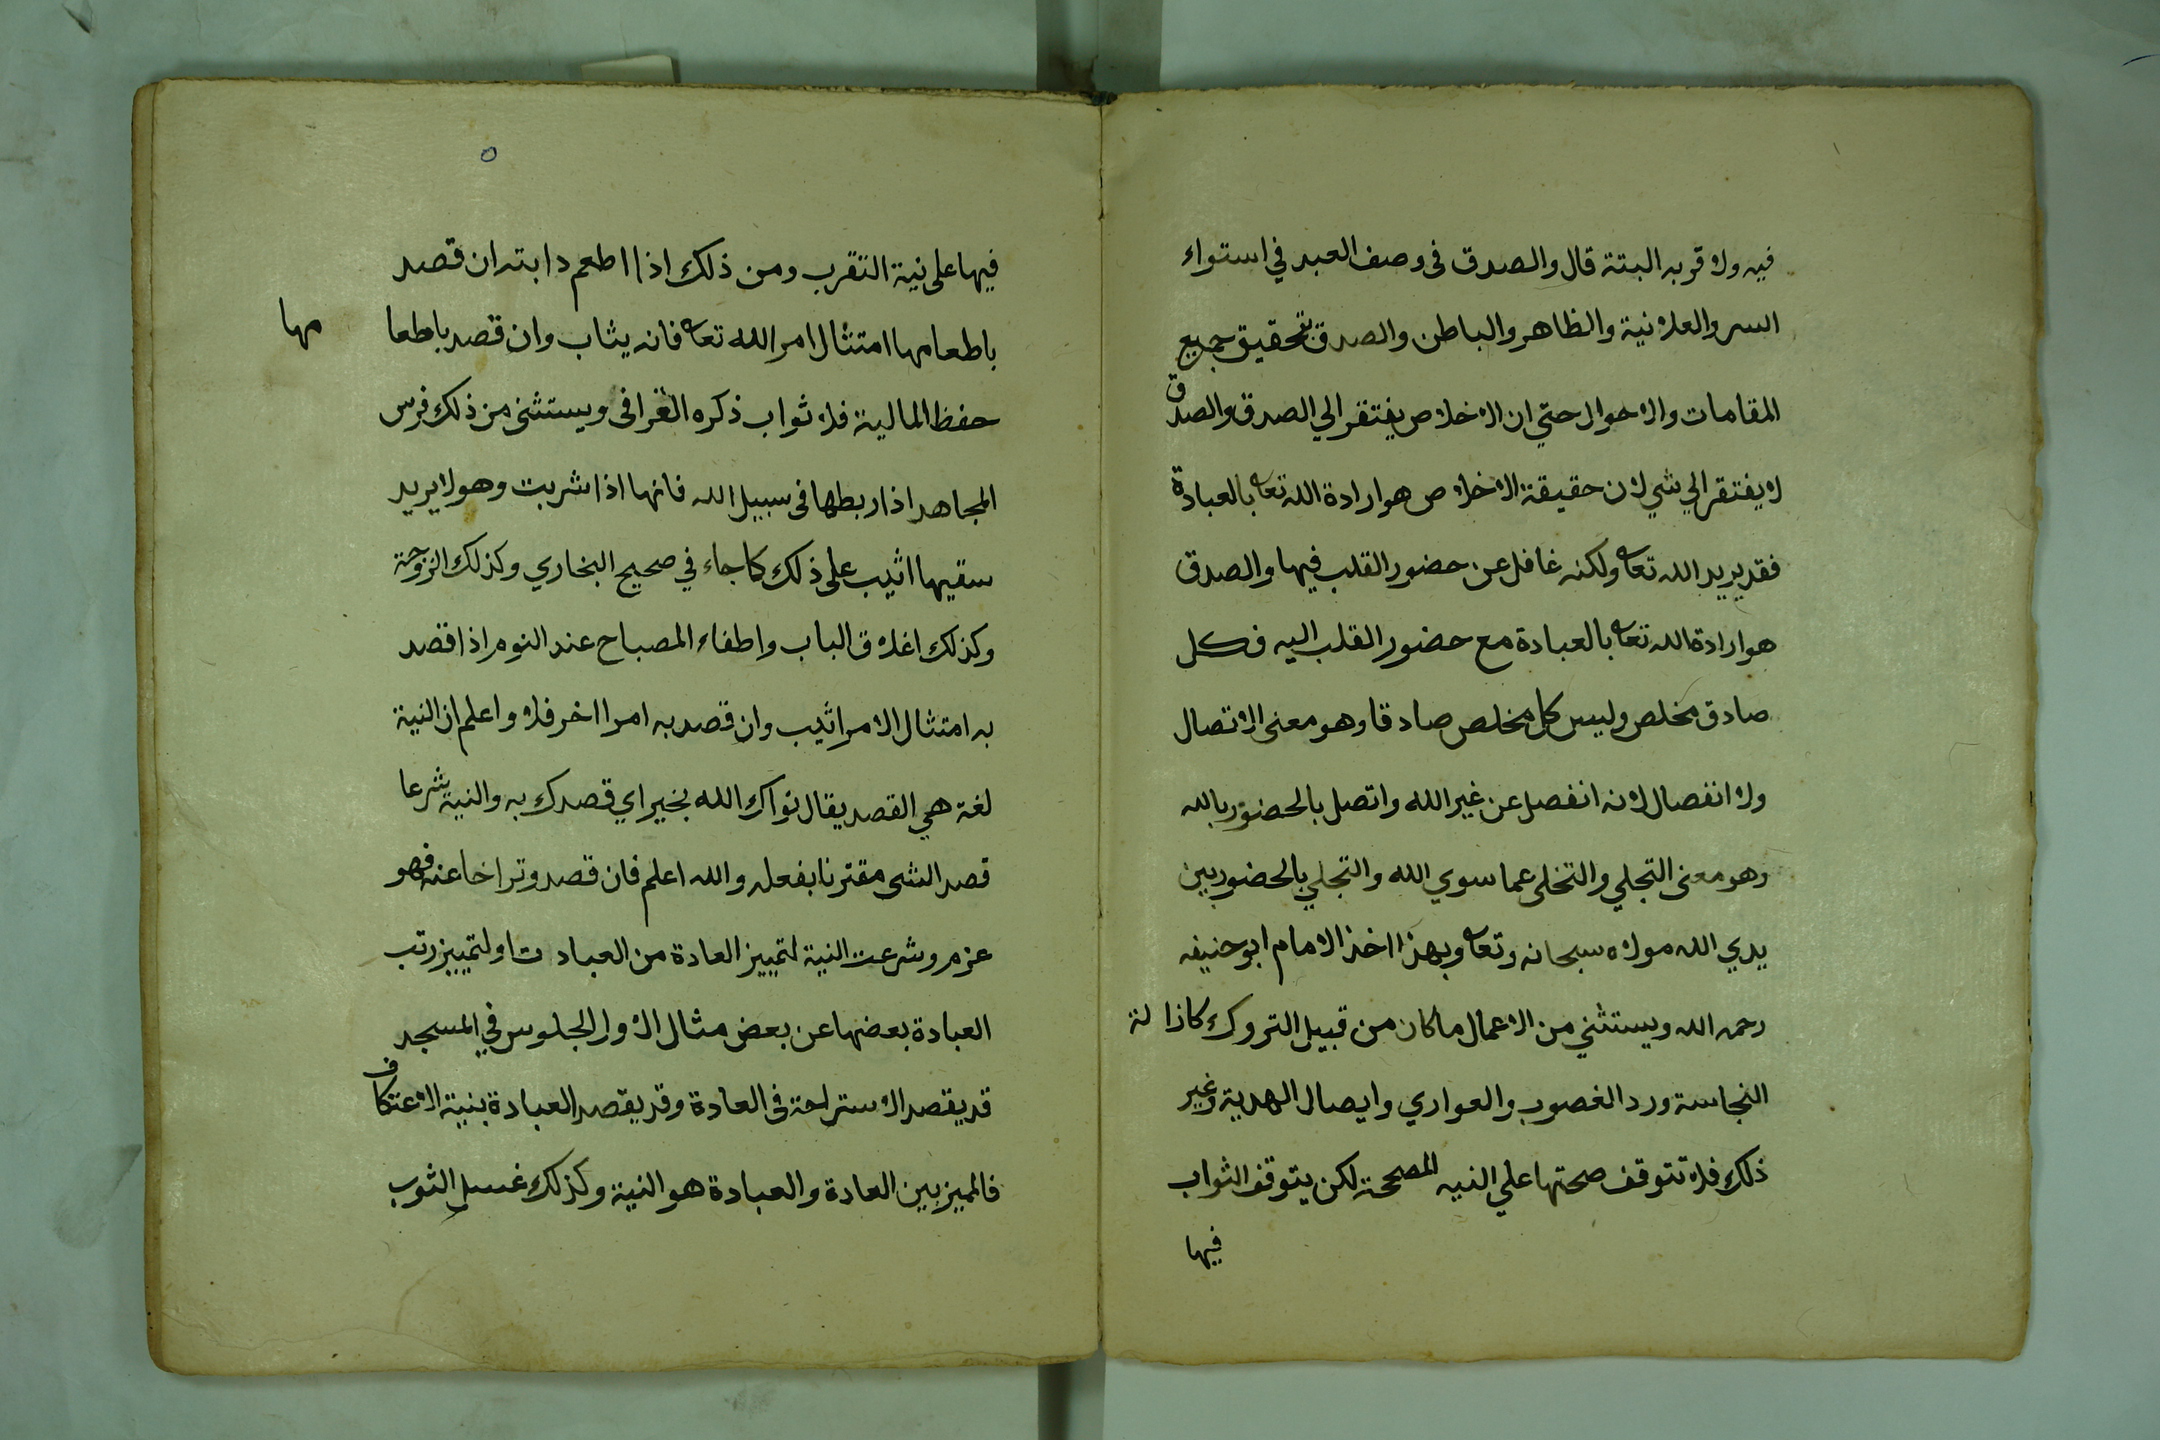 فيه ولا قربه البتة قال والصدق فى وصف العبد في استواء
السر والعلانية والظاهر والباطن والصدق بتحقيق جميع
المقامات والاحوال حتي ان الاخلاص يفتقر الي الصدق والصدق
لا يفتقر الي شي لان حقيقة الاخلاص هو ارادة الله تعا بالعبادة
فقد يريد الله تعا ولكنه غافل عن حضور القلب فيها والصدق
هو ارادة الله تعا بالعبادة مع حضور القلب اليه فكل
صادق مخلص وليس كل مخلص صادقا وهو معنى الاتصال
ولا انفصال لانه انفصل عن غير الله واتصل بالحضور بالله
وهو معنى التجلي والتخلى عما سوي الله والتجلي بالحضور بين
يدي الله مولاه سبحانه وتعا وبهذا اخذ الامام ابو حنيفه
رحمه الله ويستثني من الاعمال ما كان من قبيل التروك كازالة
النجاسة ورد الغصوب والعواري وايصال الهدية وغير
ذلك فلا تتوقف صحتها علي النيه المصححة لكن يتوقف الثواب
فيها
فيها على نية التقرب ومن ذلك اذا اطعم دابته ان قصد
باطعامها امتثال امر الله تعا فانه يثاب وان قصد باطعا
مها
حفظ المالية فلا ثواب ذكره القرافى ويستثنى من ذلك فرس
المجاهد اذا ربطها فى سبيل الله فانها اذا شربت وهو لا يريد
سقيها اثيب على ذلك كما جاء في صحيح البخاري وكذلك الزوجة
وكذلك اغلاق الباب واطفاء المصباح عند النوم اذا قصد
به امتثال الامر اثيب وان قصد به امرا اخر فلا واعلم ان النية
لغة هي القصد يقال نواك الله بخير اي قصدك به والنية شرعا
قصد الشى مقترنا بفعله والله اعلم فان قصد وتراخا عنه فهو
عزم وشرعت النية لتمييز العادة من العبادت اولتمييز رتب
العبادة بعضها عن بعض مثال الاول الجلوس في المسجد
قد يقصد الاستراحة فى العادة وقد يقصد العبادة بنية الاعتكاف
فالميز بين العادة والعبادة هو النية وكذلك غسل الثوب